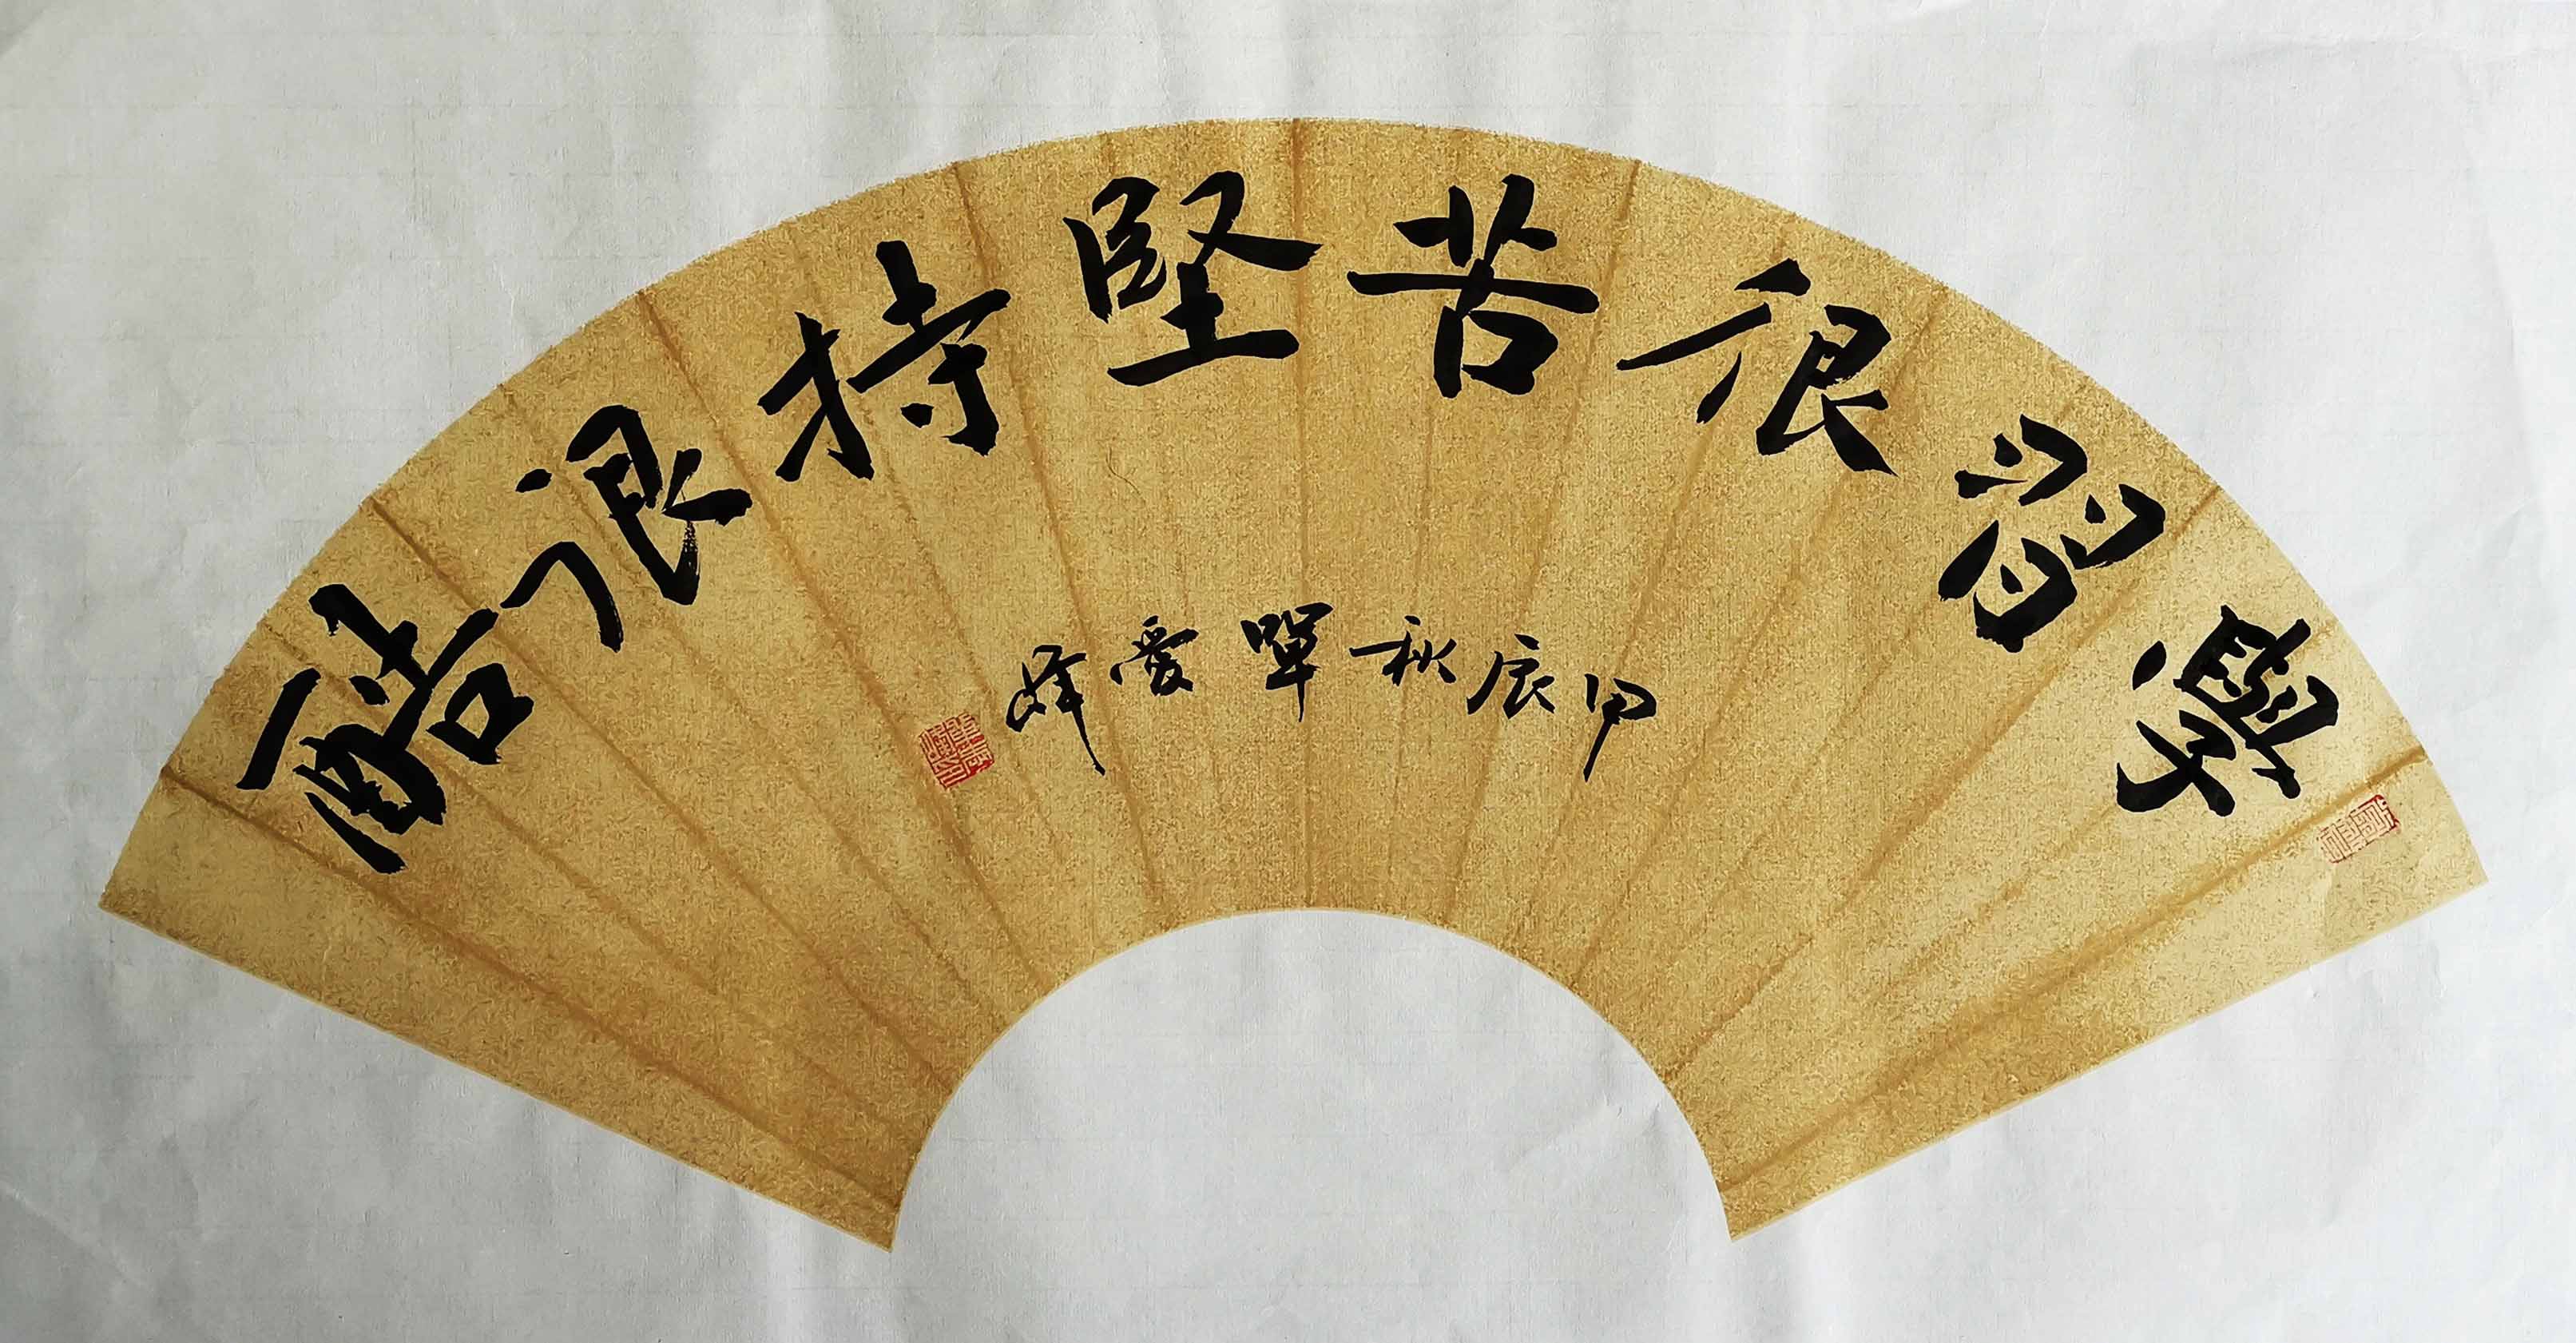 學習很苦堅持很酷
甲辰秋單愛鋒